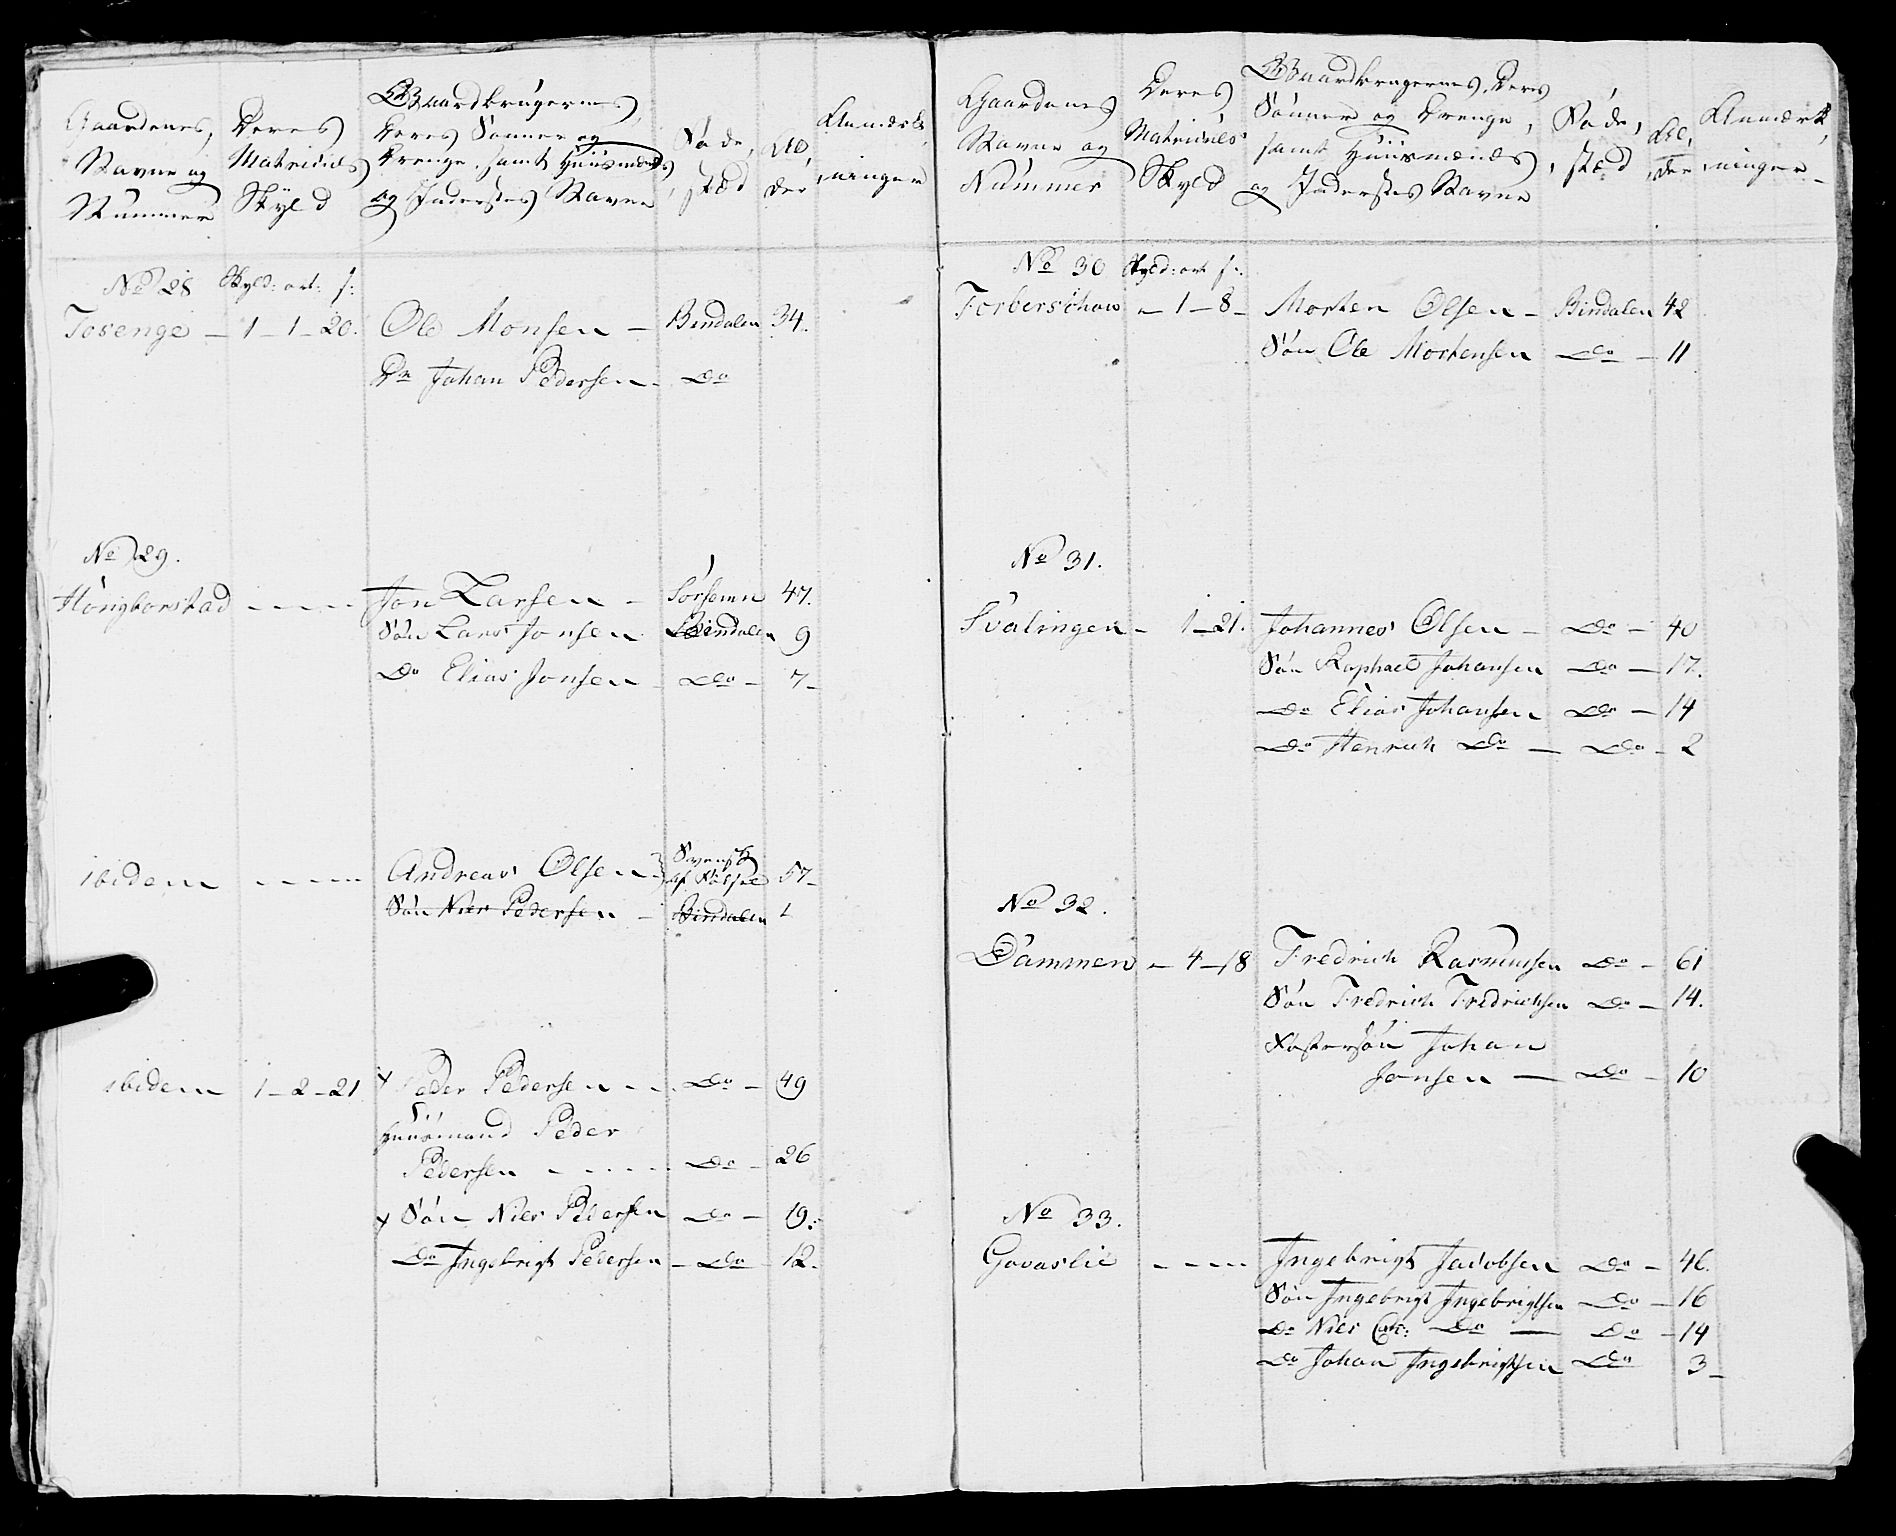 Gaardenes, Navne og Nummer | Deres Matriculs Skyld | Gaardbrugernes, Deres Sønner og Drenge, samt Huusmænds og Inderstes Navne | Føde, stæd | Al, der | Anmærk, ninger
No 28 Skyld: ort: s:
Tosenge — 1 – 1 – 20. Ole Monsen — Bindalen 34.
Dr Johan Pedersen — Do
No 29.
Høngborstad - - - - Jon Larsen — Sørsemn 47.
Søn Lars Jonsen Bindalen 9
Do Elias Jonsen — Do — 7 –
ibidem - - - - - Andreas Olsen — Svensk af 57 –
Søn Niels Pedersen — Bindalen 1
ibidem 1 – 2 – 21 x Peder Pedersen - - - Do — 49
Huusmand Peder
Pedersen - - - - - Do — 26
x Søn Niels Pedersen Do — 19.
Do Ingebrigt Pedersen — Do — 12.
Gaardenes Navne og Nummer | Deres Matriculs Skyld | Gaardbrugernes, Deres Sønner og Drenge, samt Huusmænds og Inderstes Navne | Føde, stæd | Al, der | Anmærk, ninger –
No 30 Skyld: ort s:.
Forberschow — 1 – 8 – Morten Olsen — Bindalen 42
Søn Ole Mortensen Do — 11
No 31.
Svalingen — 1 – 21. Johannes Olsen — Do — 40
Søn Raphael Johansen Do — 17.
Do Elias Johansen Do — 14
Do Henrich Do — Do — 2
No 32.
Dammen — 4 – 18 Fredrich Rasmussen Do — 61
Søn Fredrich Fredrichsen Do — 14.
Fostersøn Johan
Jonsen — Do — 10
No 33.
Govaslie - - - - Ingebrigt Jacobsen Do — 46.
Søn Ingebrigt Ingebrigtsen Do — 16
Do Niels Do — Do — 14
Do Johan Ingebrigtsen Do 3 –